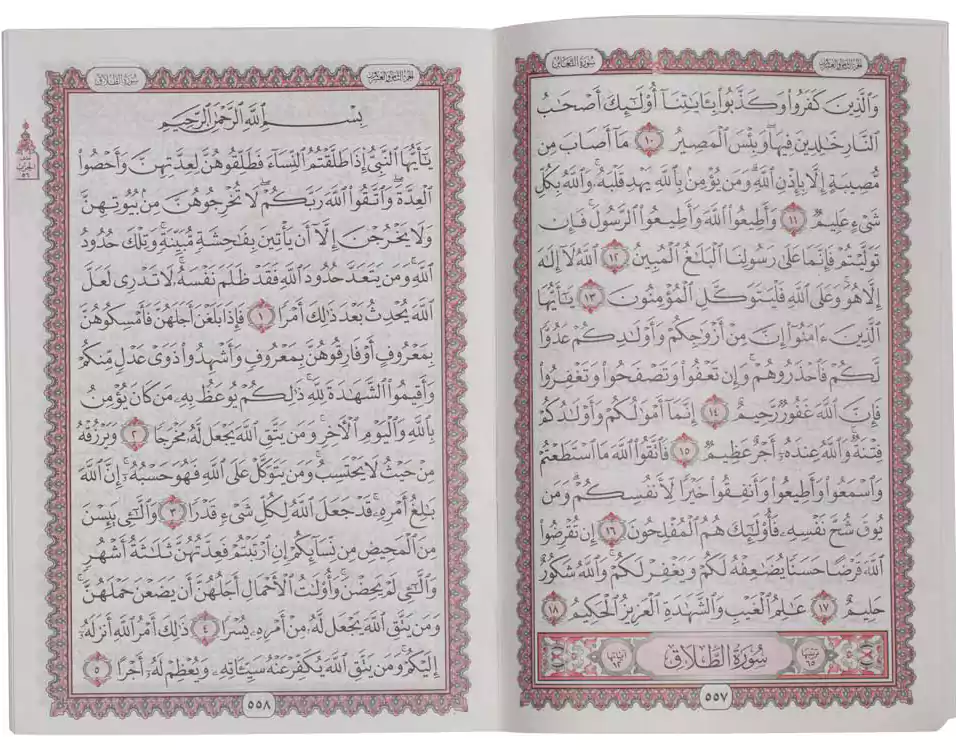 سُورَةُ التَّغَابُنِ
الجُزْءُ الثَّامِنُ وَالعِشْرُونَ
وَالَّذِينَ كَفَرُوا وَكَذَّبُوا بِـَٔايَٰتِنَآ أُو۟لَٰٓئِكَ أَصْحَٰبُ
النَّارِ خَٰلِدِينَ فِيهَا وَبِئْسَ الْمَصِيرُ ١٠ مَآ أَصَابَ مِن
مُّصِيبَةٍ إِلَّا بِإِذْنِ اللَّهِ وَمَن يُؤْمِنۢ بِاللَّهِ يَهْدِ قَلْبَهُۥ وَاللَّهُ بِكُلِّ
شَىْءٍ عَلِيمٌ ١١ وَأَطِيعُوا اللَّهَ وَأَطِيعُوا الرَّسُولَ فَإِن
تَوَلَّيْتُمْ فَإِنَّمَا عَلَىٰ رَسُولِنَا الْبَلَٰغُ الْمُبِينُ ١٢ اللَّهُ لَآ إِلَٰهَ
إِلَّا هُوَ وَعَلَى اللَّهِ فَلْيَتَوَكَّلِ الْمُؤْمِنُونَ ١٣ يَٰٓأَيُّهَا
الَّذِينَ ءَامَنُوٓا إِنَّ مِنْ أَزْوَٰجِكُمْ وَأَوْلَٰدِكُمْ عَدُوًّا
لَّكُمْ فَاحْذَرُوهُمْ وَإِن تَعْفُوا وَتَصْفَحُوا وَتَغْفِرُوا
فَإِنَّ اللَّهَ غَفُورٌ رَّحِيمٌ ١٤ إِنَّمَآ أَمْوَٰلُكُمْ وَأَوْلَٰدُكُمْ
فِتْنَةٌ وَاللَّهُ عِندَهُۥٓ أَجْرٌ عَظِيمٌ ١٥ فَاتَّقُوا اللَّهَ مَا اسْتَطَعْتُمْ
وَاسْمَعُوا وَأَطِيعُوا وَأَنفِقُوا خَيْرًا لِّأَنفُسِكُمْ وَمَن
يُوقَ شُحَّ نَفْسِهِۦ فَأُو۟لَٰٓئِكَ هُمُ الْمُفْلِحُونَ ١٦ إِن تُقْرِضُوا
اللَّهَ قَرْضًا حَسَنًا يُضَٰعِفْهُ لَكُمْ وَيَغْفِرْ لَكُمْ وَاللَّهُ شَكُورٌ
حَلِيمٌ ١٧ عَٰلِمُ الْغَيْبِ وَالشَّهَٰدَةِ الْعَزِيزُ الْحَكِيمُ ١٨
ترتيبها ٦٥ سُورَةُ الطَّلَاقِ آياتها ١٢
٥٥٧
سُورَةُ الطَّلَاقِ
الجُزْءُ الثَّامِنُ وَالعِشْرُونَ
بِسْمِ اللَّهِ الرَّحْمَٰنِ الرَّحِيمِ
يَٰٓأَيُّهَا النَّبِىُّ إِذَا طَلَّقْتُمُ النِّسَآءَ فَطَلِّقُوهُنَّ لِعِدَّتِهِنَّ وَأَحْصُوا
الْعِدَّةَ وَاتَّقُوا اللَّهَ رَبَّكُمْ لَا تُخْرِجُوهُنَّ مِنۢ بُيُوتِهِنَّ
وَلَا يَخْرُجْنَ إِلَّآ أَن يَأْتِينَ بِفَٰحِشَةٍ مُّبَيِّنَةٍ وَتِلْكَ حُدُودُ
اللَّهِ وَمَن يَتَعَدَّ حُدُودَ اللَّهِ فَقَدْ ظَلَمَ نَفْسَهُۥ لَا تَدْرِى لَعَلَّ
اللَّهَ يُحْدِثُ بَعْدَ ذَٰلِكَ أَمْرًا ١ فَإِذَا بَلَغْنَ أَجَلَهُنَّ فَأَمْسِكُوهُنَّ
بِمَعْرُوفٍ أَوْ فَارِقُوهُنَّ بِمَعْرُوفٍ وَأَشْهِدُوا ذَوَىْ عَدْلٍ مِّنكُمْ
وَأَقِيمُوا الشَّهَٰدَةَ لِلَّهِ ذَٰلِكُمْ يُوعَظُ بِهِۦ مَن كَانَ يُؤْمِنُ
بِاللَّهِ وَالْيَوْمِ الْآخِرِ وَمَن يَتَّقِ اللَّهَ يَجْعَل لَّهُۥ مَخْرَجًا ٢ وَيَرْزُقْهُ
مِنْ حَيْثُ لَا يَحْتَسِبُ وَمَن يَتَوَكَّلْ عَلَى اللَّهِ فَهُوَ حَسْبُهُۥٓ إِنَّ اللَّهَ
بَٰلِغُ أَمْرِهِۦ قَدْ جَعَلَ اللَّهُ لِكُلِّ شَىْءٍ قَدْرًا ٣ وَالَّٰٓـِٔى يَئِسْنَ
مِنَ الْمَحِيضِ مِن نِّسَآئِكُمْ إِنِ ارْتَبْتُمْ فَعِدَّتُهُنَّ ثَلَٰثَةُ أَشْهُرٍ
وَالَّٰٓـِٔى لَمْ يَحِضْنَ وَأُو۟لَٰتُ الْأَحْمَالِ أَجَلُهُنَّ أَن يَضَعْنَ حَمْلَهُنَّ
وَمَن يَتَّقِ اللَّهَ يَجْعَل لَّهُۥ مِنْ أَمْرِهِۦ يُسْرًا ٤ ذَٰلِكَ أَمْرُ اللَّهِ أَنزَلَهُۥٓ
إِلَيْكُمْ وَمَن يَتَّقِ اللَّهَ يُكَفِّرْ عَنْهُ سَيِّـَٔاتِهِۦ وَيُعْظِمْ لَهُۥٓ أَجْرًا ٥
٥٥٨